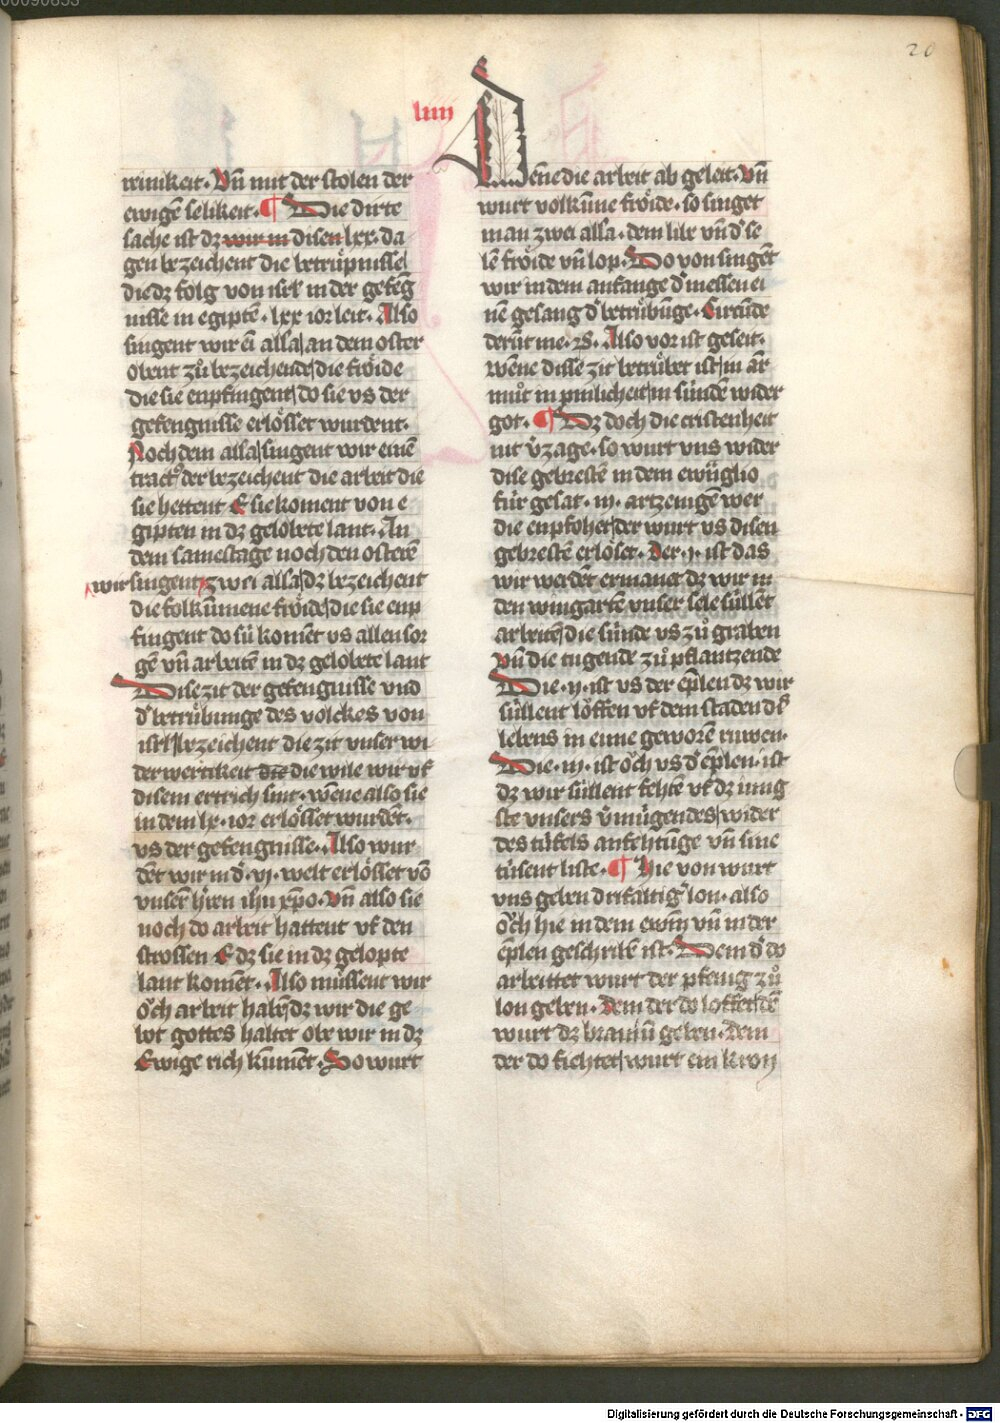 20
liiij
reinikeit. Vn̄ mit der stolen der
ewigē selikeit. ¶ Die dirte
sache ist dz wir in disen lxx. da
gen bezeichent die betrůpnissel
die dz folg von isrl̄ in der gefēg
nisse in egiptē. lxx ior leit. Also
singent wir ei alla an dem oster
obent zů bezeichende die frőide
die sie enpfingent do sie vs der
gefengnisse erlősset wurdent.
Noch dem alla singent wir einē
tractꝰ der bezeichent die arbeit die
sie hettent E sie koment von e
gipten in dz gelobete lant. An
dem samestage noch den osterē
wir singent zwei alla dz bezeichent
die folkūmene frőide die sie enp
fingent do sü komēt vs allen sor
gē vn̄ arbeitē in dz gelobete lant
Dise zit der gefengnisse vnd
dˀ betrůbunge des volckes von
isrl̄ bezeichent die zit vnser wi
derwertikeit die wile wir vf
disem ertrich sint. wēne also sie
in dem lxx. ior erlősset wurdēt.
vs der gefengnisse. Also wur
dēt wir in dˀ. vj. welt erlősset vō
vnserˀ hˀren ih̄u xp̄o. Vn̄ also sie
noch do arbeit hattent vf den
strossen E dz sie in dz gelopte
lant komēt. Also müssent wir
őch arbeit habē dz wir die ge
bot gottes haltet obe wir in dz
Ewige rich kūmēt. So wurt
Wēne die arbeit ab geleit. Vn̄
wurt volkūme frőide. so singet
man zwei alla. dem libe vn̄ dˀ se
lē frőide vn̄ lop. Do von singēt
wir in dem anfange dˀ messen ei
nē gesang dˀ betrůbūge. Circūde
derūt me. ꝛs. Also vor ist geseit.
wēne disse zit betrůbet ist in ar
műt in pinlicheit in sündē wider
got. ¶ Dz doch die cristenheit
nit v̄zage. so wurt vns wider
dise gebrestē in dem ewūglio
für gesat. iij. artzenigē wer
die enpfohet der wurt vs disen
gebrestē erlőset. Der. j. ist das
wir werdēt ermanet dz wir in
den wingartē vnser sele süllēt
arbeitē die sünde vs zů graben
Vn̄ die tugende zů pflantzende
Die. ij. ist vs der ep̄len dz wir
süllent lőffen vf dem staden dˀs
lebens in eime geworē ruwen.
Die. iij. ist őch vs dˀ ep̄len. ist
dz wir süllent fehtē vf dz innig
ste vnsers v̄mügendes wider
des tüfels anfehtūge vn̄ sine
tüsent liste. ¶ Hie von wurt
vns geben drifaltigˀ lon. also
őch hie in dem ewm̄ vn̄ in der
ep̄len geschribē ist. Dem dˀ do
arbeittet wurt der pfenig zů
lon geben. Dem der do loffet dē
wurt dz braniū geben. dem
der do fichtet wurt ein kron
Digitalisierung gefördert durch die Deutsche Forschungsgemeinschaft - DFG